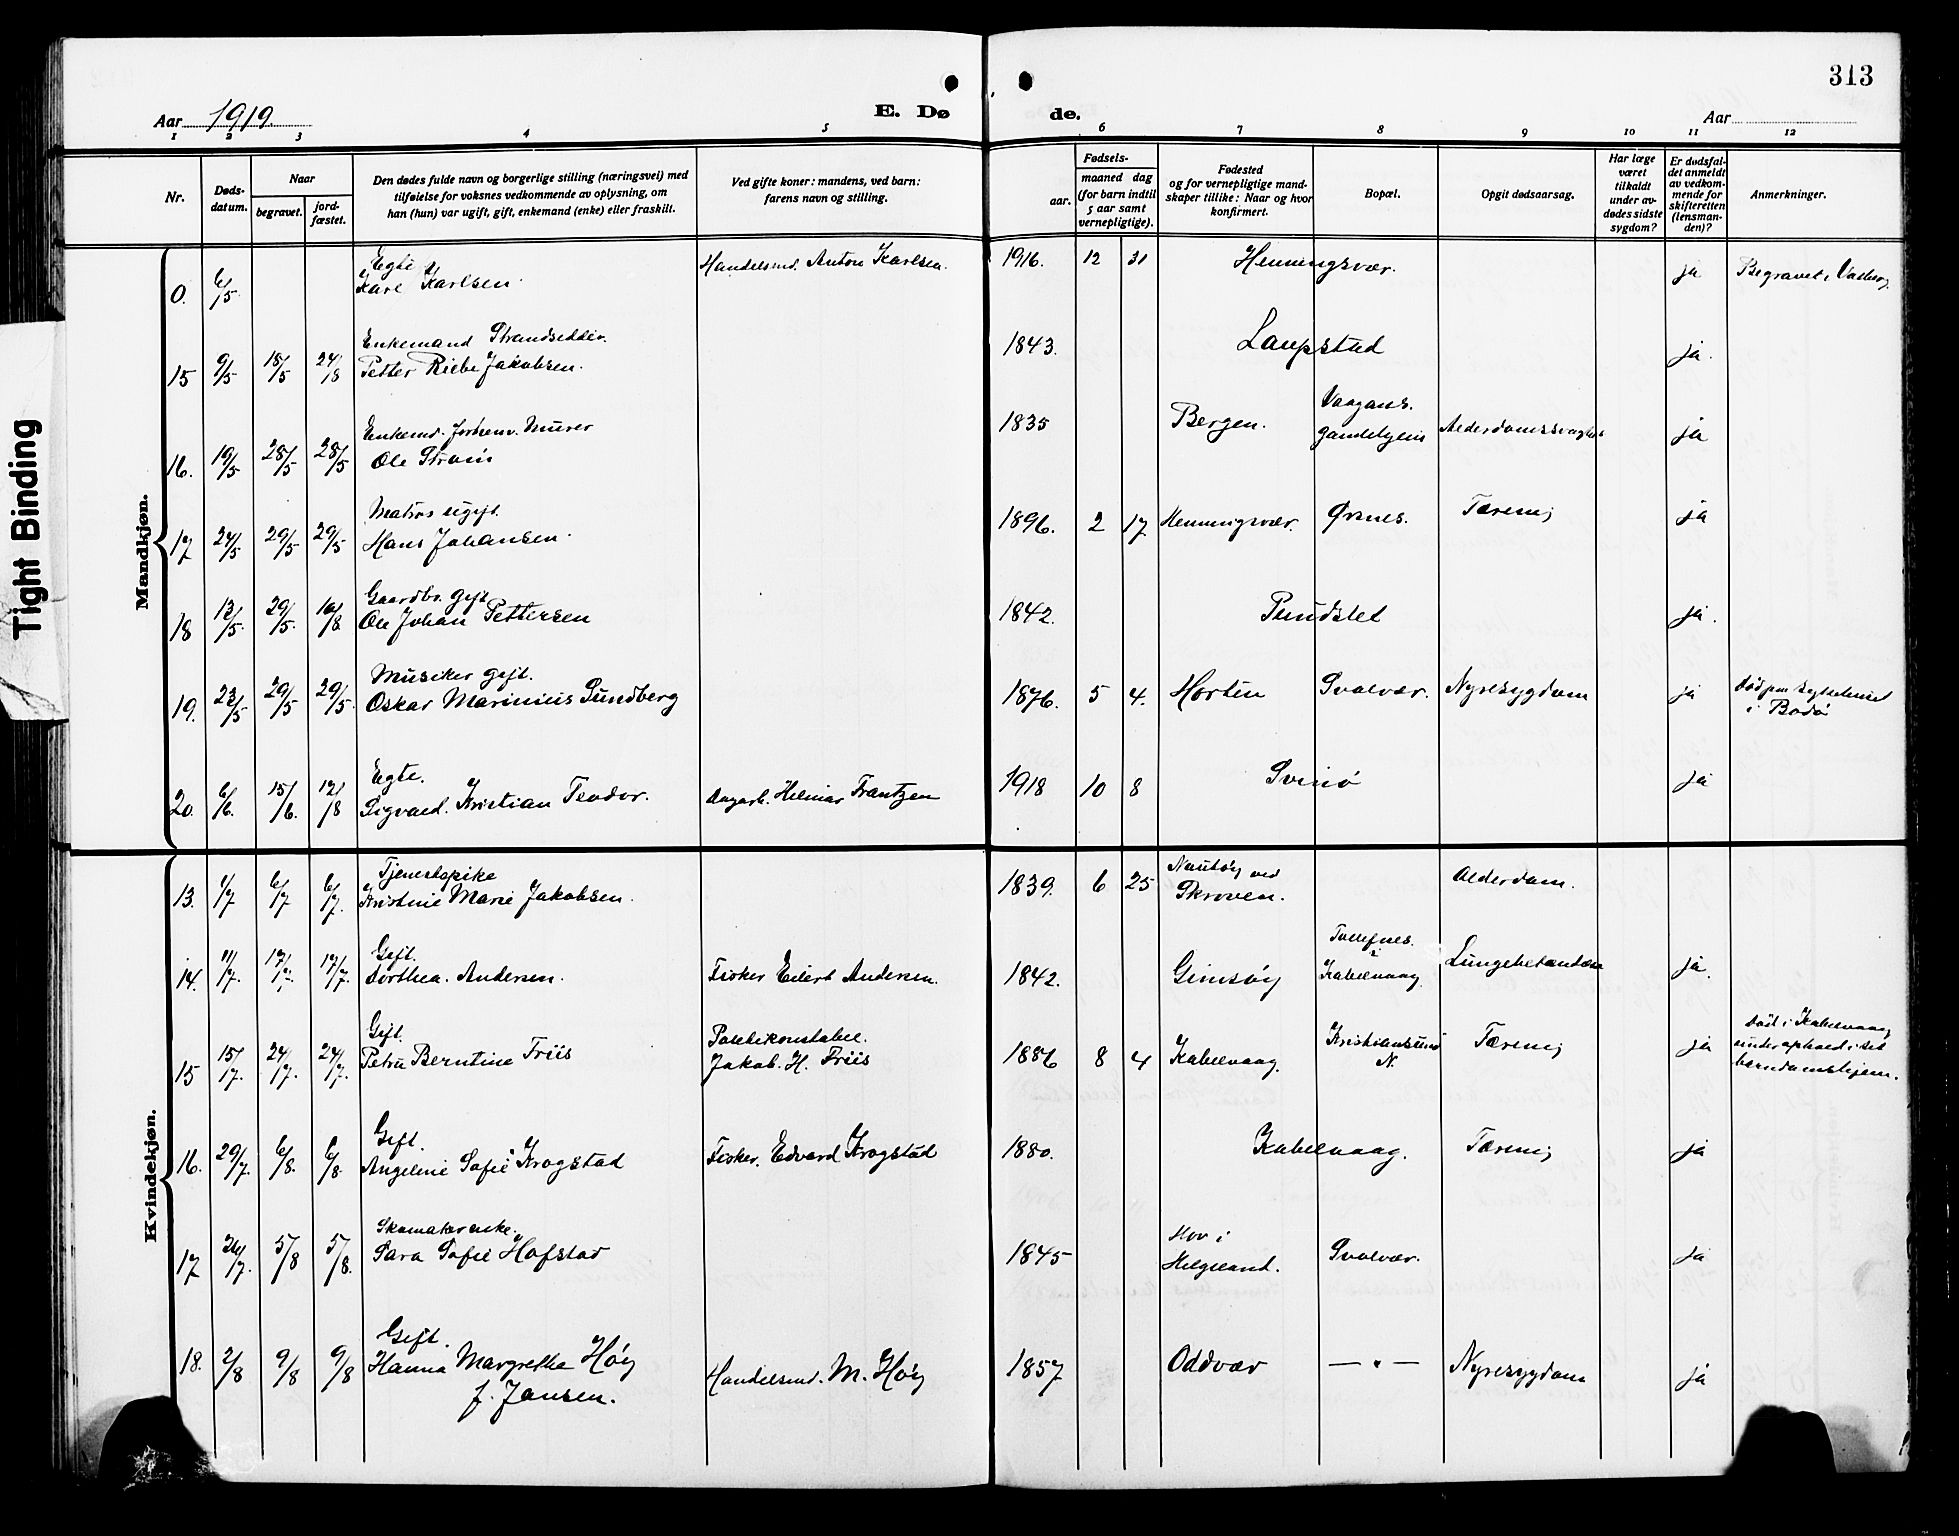 Tight Binding
313
Aar 1919.
E. Dø
de.
Aar
1 2 3 4 5
6 7 8 9 10 11 12
Nr.
Døds-
datum.
Naar
begravet.
jord-
fæstet.
Den dødes fulde navn og borgerlige stilling (næringsvei) med
tilføielse for voksnes vedkommende av oplysning, om
han (hun) var ugift, gift, enkemand (enke) eller fraskilt.
Ved gifte koner: mandens, ved barn:
farens navn og stilling.
Fødsels-
aar.
maaned dag
(for barn indtil
5 aar samt
vernepligtige).
Fødested
og for vernepligtige mand-
skaper tillike: Naar og hvor
konfirmert.
Bopæl.
Opgit dødsaarsag.
Har læge
været
tilkaldt
under av-
dødes sidste
sygdom?
Er dødsfal-
det anmeldt
av vedkom-
mende for
skifteretten
(lensman-
den)?
Anmerkninger.
Mandkjøn.
Egte
0. 6/5 Kåre Karlsen. Handelsmd. Anton Karlsen. 1916. 12 31 Henningsvær. ja Begravet i Valberg
Enkemand Strandsidder.
15 9/5 18/5 24/8 Petter Riebe Jakobsen. 1843. Laupstad ja.
Enkemd. Forhenv. Murer
16. 19/5 28/5 28/5 Ole Strøm 1835 Bergen. Vaagans. gamlehjem Alderdomssvaghet ja
Matros ugift.
17 24/5 29/5 29/5 Hans Johansen. 1896. 2 17 Henningsvær. Ørsnes. Tæring ja
Gaardbr. gift
18 13/5 29/5. 10/8 Ole Johan Pettersen 1842. Pundslet ja.
Musiker gift.
19. 23/5 29/5 29/5. Oskar Marinius Sundberg 1876. 5 4. Horten Svolvær. Nyresygdom ja Død paa sykehuset
i Bodø
Egte.
20. 6/6. 15/6. 12/8 Sigvald. Kristian Teodor. Angarb. Hilmar Frantzen 1918 10 8 Svinø ja
Kvindekjøn.
Tjenestepike
13. 1/7 6/7 6/7. Kristine Marie Jakobsen. 1839. 6 25 Nautøy ved
Skroven. Alderdom.
Gift.
14. 11/7. 17/7. 17/7. Dorthea. Andersen. Fisker Eilert Andersen. 1842. Gimsøy Kabelvaag Lungebetændelse ja.
Gift.
15 15/7. 24/7. 24/7. Petra Berntine Friis Politikonstabel.
Jakob. H. Friis 1886 8 4 Kabelvaag. Kristiansund
N. Tæring ja Død i Kabelvaag
under ophold i sit
barndomshjem.
Gift.
16. 29/7. 6/8. 6/8 Angeline Sofie Krogstad Fisker. Edvard Krogstad 1880. Kabelvaag. Tæring ja
Skomakerenke.
17 26/7. 5/8 5/8. Sara Sofie Hofstad 1845 Hov i
Helgeland. Svolvær. ja
Gift.
18. 2/8 9/8 9/8 Hanna Margrethe Høy
f. Jansen. Handelsmd. M. Høy 1857 Oddvær — " — Nyresygdom ja